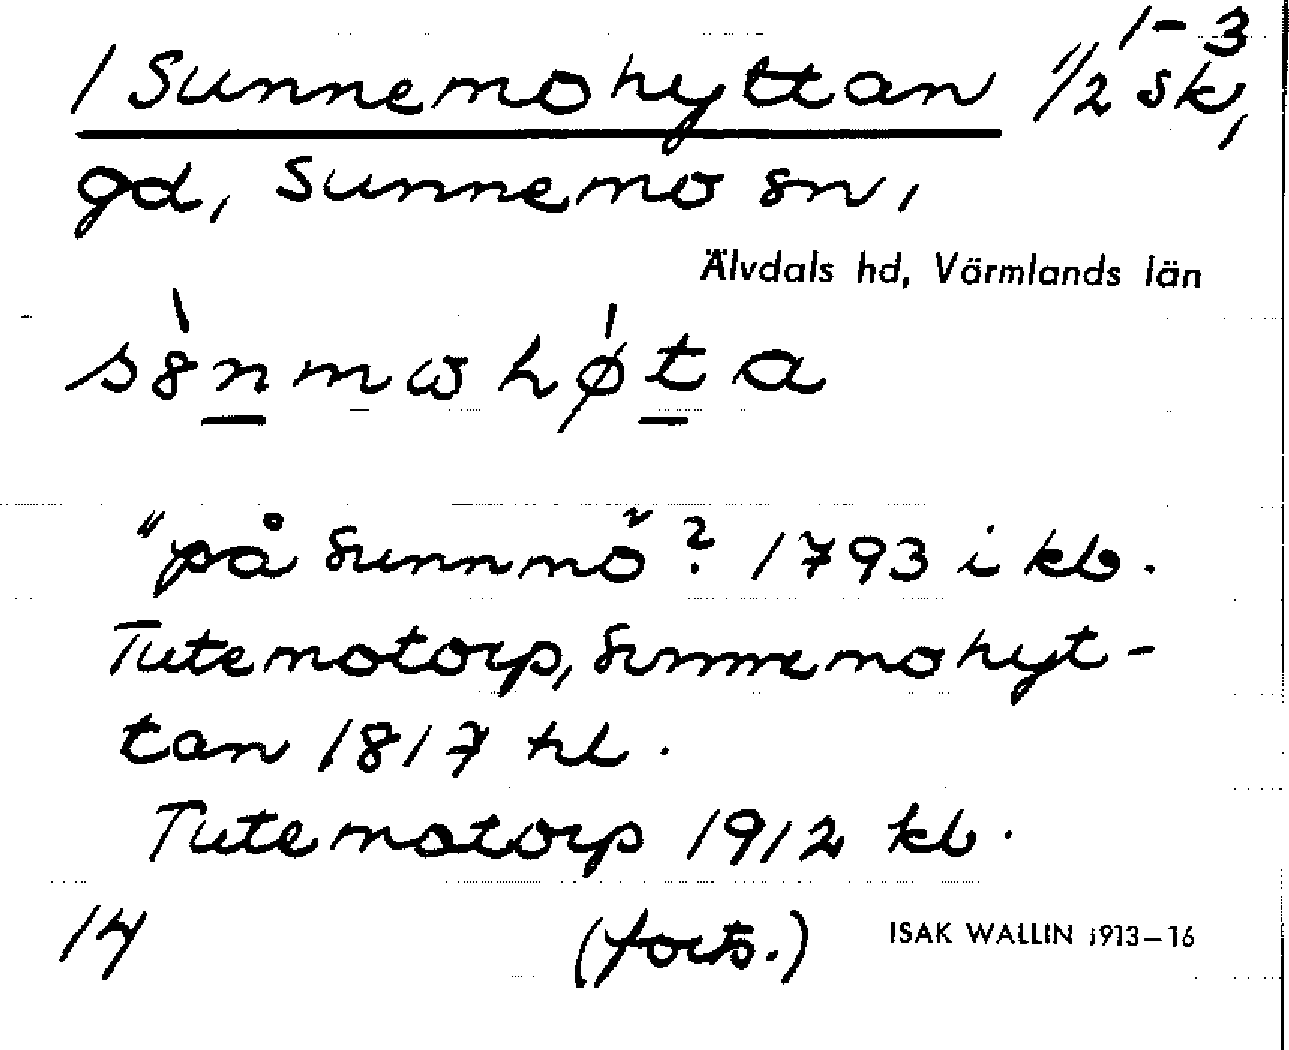 1-3
/ Sunnemohyttan 1/2 sk,
gd, Sunnemo sn,
Älvdals hd, Värmlands län
"på Sunnmo"? 1793 i kb.
Tutemotorp, Sunnemohyt-
tan 1817 hl.
Tutemotorp 1912 kb.
14 (forts.) ISAK WALLIN 1913–16